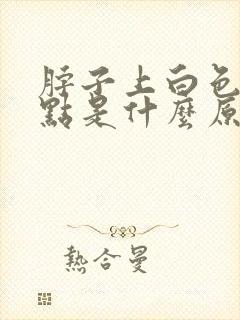 脖子上白色
點是什麼原
熱合曼